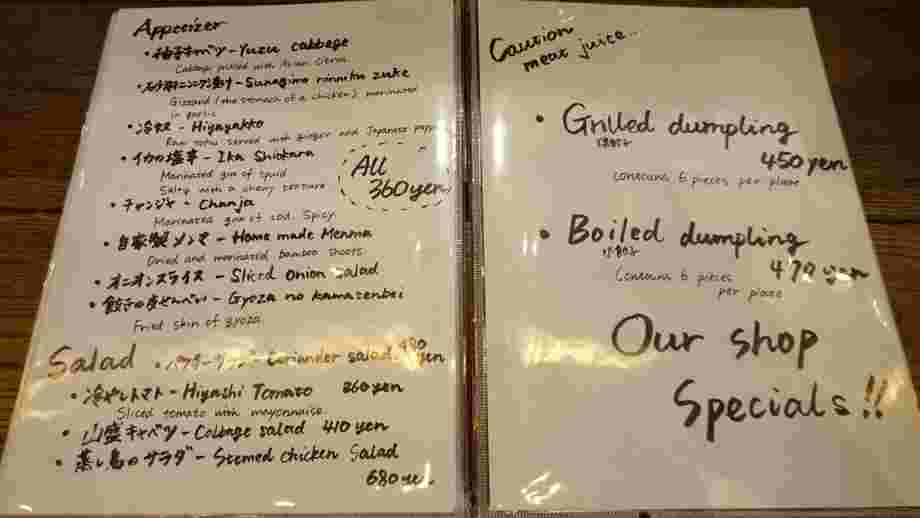 Appetizer
・柚子キャベツ - Yuzu cabbage
Cabbage pickled with Asian citrus.
・砂肝ニンニク漬け - Sunagimo ninniku zuke
Gizzard (the stomach of a chicken) marinated
in garlic
・冷奴 - Hiyayakko
Raw tofu served with ginger and Japanese
・イカの塩辛 - Ika Shiokara
Marinated gim of squid
Salty with a chewy texture
All
360yen
・チャンジャ - Chanja
Marinated gim of cod. Spicy.
・自家製メンマ - Home made Menma
Dried and marinated bamboo shoots.
・オニオンスライス - Sliced onion salad
・餃子の皮せんべい - Gyoza no kawasenbei
Fried skin of gyoza
Salad ・パクチーサラダ - Coriander salad
yen
・冷やしトマト - Hiyashi Tomato 360yen
Sliced tomato with mayonnaise.
・山盛キャベツ - Cabbage salad 410 yen
・蒸し鳥のサラダ - Stemed chicken Salad
680
Caution
meat juice..
・Grilled dumpling
450 yen
contains 6 pieces per plate
・Boiled dumpling
470 yen
Contains 6 pieces
per plate
Our shop
Specials!!